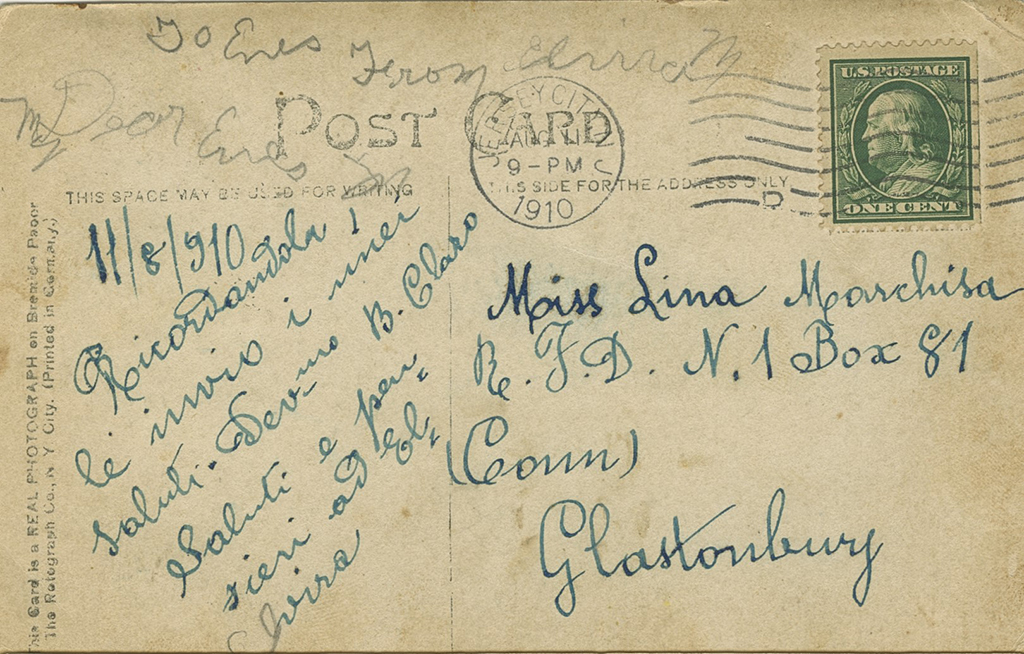 To Enes From Elvira
My Dear Enes
POST CARD
THIS SPACE MAY BE USED FOR WRITING
THIS SIDE FOR THE ADDRESS ONLY
JERSEY CITY
AUG 11
9-PM
1910
D
U.S. POSTAGE
ONE CENT
This Card is a REAL PHOTOGRAPH on Bromide Paper
The Rotograph Co., N Y City. (Printed in Germany.)
11/8/910
Ricordandola!
le invio i miei
saluti. Dev.mo B. Claro
Saluti e pen,,
sieri ad El,,
vira
Miss Lina Marchisa
R. F. D. N. 1 Box 81
(Conn)
Glastonbury